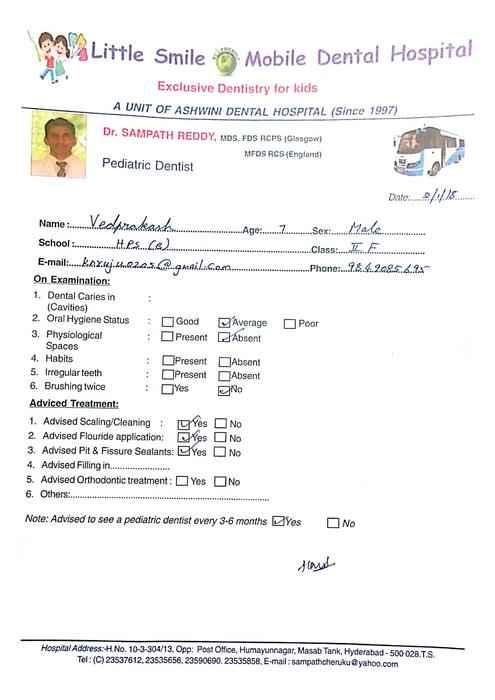 Little Smile Mobile Dental Hospital
Exclusive Dentistry for kids
A UNIT OF ASHWINI DENTAL HOSPITAL (Since 1997)
Dr. SAMPATH REDDY, MDS, FDS RCPS (Glasgow)
MFDS RCS (England)
Pediatric Dentist
Date:
Name: Vedprakash Age: 7 Sex: Male
School: HPS (B) Class: II F
E-mail: @gmail.com Phone:
On Examination:
1. Dental Caries in :
(Cavities)
2. Oral Hygiene Status : Good Average Poor
3. Physiological : Present Absent
Spaces
4. Habits : Present Absent
5. Irregular teeth : Present Absent
6. Brushing twice : Yes No
Adviced Treatment:
1. Advised Scaling/Cleaning : Yes No
2. Advised Flouride application: Yes No
3. Advised Pit & Fissure Sealants: Yes No
4. Advised Filling in....................
5. Advised Orthodontic treatment : Yes No
6. Others:..................................................................
Note: Advised to see a pediatric dentist every 3-6 months Yes No
Hospital Address:-H.No. 10-3-304/13, Opp: Post Office, Humayunnagar, Masab Tank, Hyderabad - 500 028.T.S.
Tel : (C) 23537612, 23535656, 23590690. 23535858, E-mail : sampathcheruku@yahoo.com